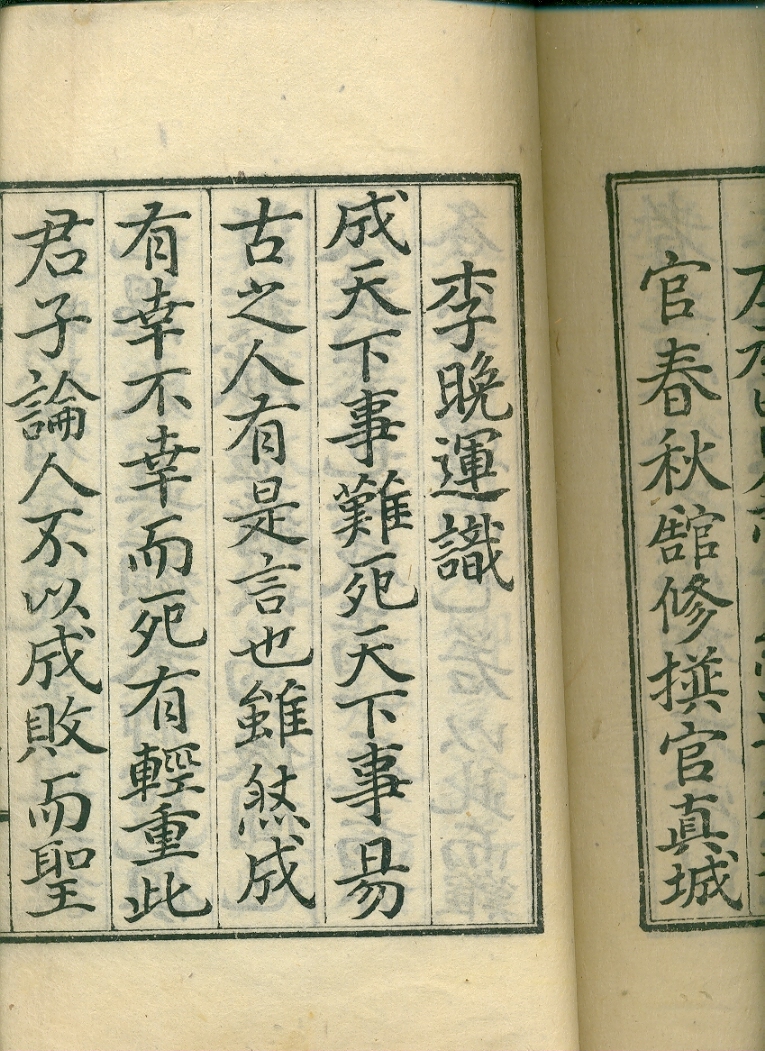 官春秋舘修撰官真城
李晩運識
成天下事難死天下事易
古之人有是言也雖然成
有幸不幸而死有輕重此
君子論人不以成敗而聖